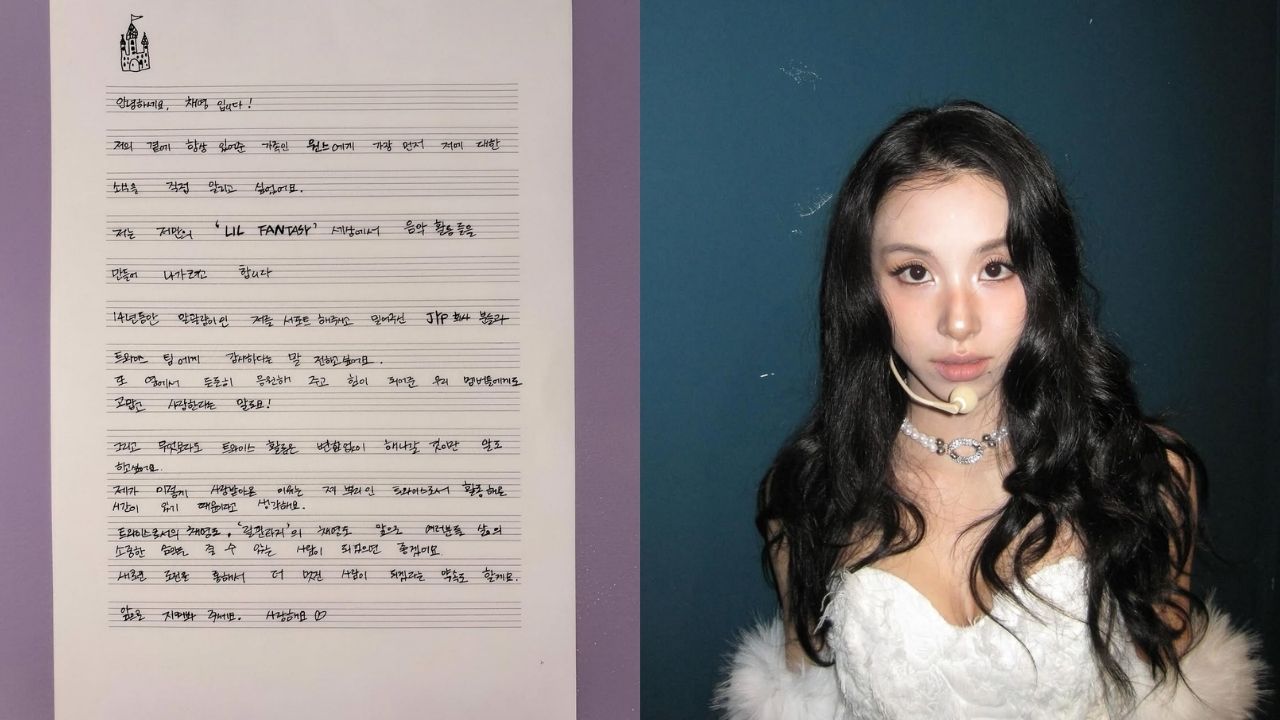 안녕하세요, 채영 입니다!
저의 곁에 항상 있어준 가족인 원스에게 가장 먼저 저에 대한
소식을 직접 알리고 싶었어요.
저는 저만의 'LIL FANTASY' 세상에서 음악 활동들을
만들어 나가려고 합니다
14년동안 말괄량이인 저를 서포트 해주시고 믿어주신 JYP 회사 분들과
트와이스 팀에게 감사하다는 말 전하고싶어요.
또 옆에서 든든히 응원해 주고 힘이 되어준 우리 멤버들에게도
고맙고 사랑한다는 말도요!
그리고 무엇보다도 트와이스 활동은 변함없이 해나갈 것이란 말도
하고싶어요.
제가 이렇게 사랑받아온 이유는 제 뿌리인 트와이스로서 활동해온
시간이 있기 때문이라고 생각해요.
트와이스로서의 채영도, '릴판타지'의 채영도 앞으로 여러분들 삶의
소중한 순간을 줄 수 있는 사람이 되었으면 좋겠어요
새로운 도전을 통해서 더 멋진 사람이 되겠다는 약속도 할게요.
앞으로 지켜봐 주세요. 사랑해요 ♡